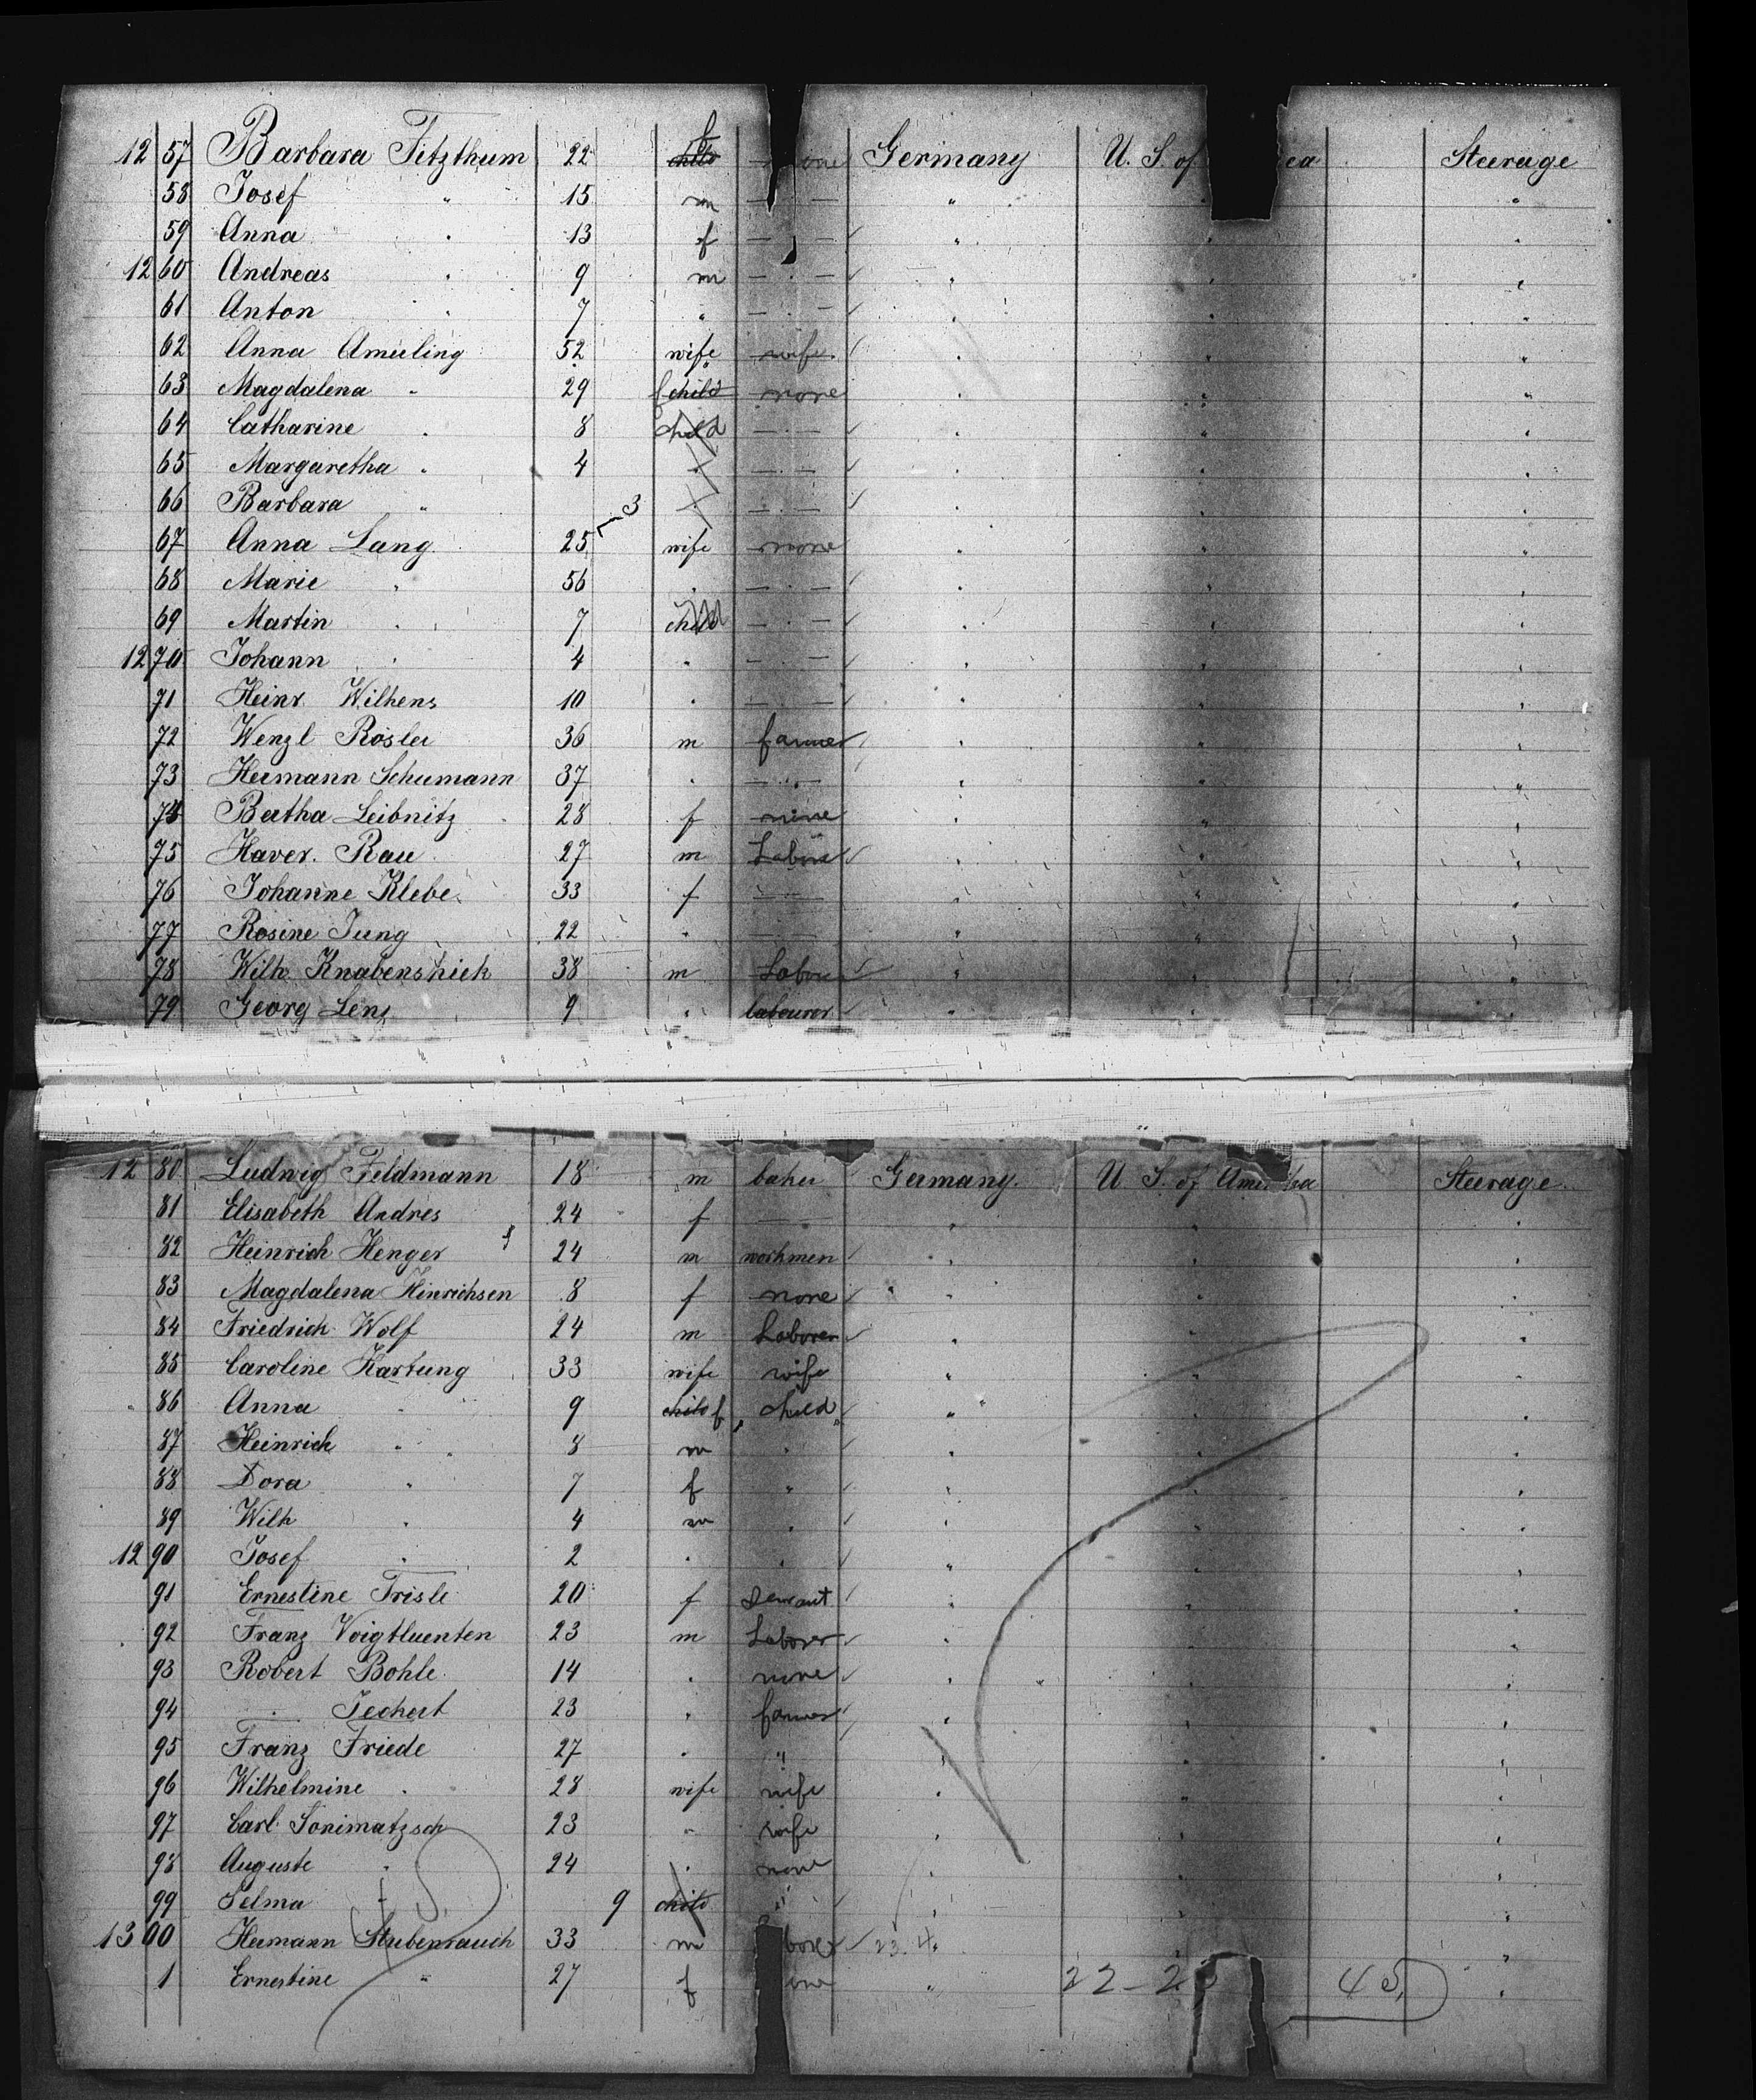 12 57 Barbara Fitzthum 22 child f none Germany U. S. of ea Steerage
58 Josef " 15 m — " — " " "
59 Anna " 13 f — " — " " "
1260 Andreas " 9 m — " — " " "
61 Anton " 7 " — " — " " "
62 Anna Ameiling 52 wife wife " " "
63 Magdalena " 29 f child none " " "
64 Catharine " 8 child — " — " " "
65 Margaretha " 4 " — " — " " "
66 Barbara " 3 " — " — " " "
67 Anna Lang 25 wife none " " "
68 Marie " 56 " — " — " " "
69 Martin " 7 child — " — " " "
1270 Johann " 4 " — " — " " "
71 Heinr. Wilkens 10 " — " — " " "
72 Wenzl Rösler 36 m farmer " " "
73 Hermann Schumann 37 " — " — " " "
74 Bertha Leibnitz 28 f none " " "
75 Xaver. Rau 27 m Labore " " "
76 Johanne Klebe 33 f — " " "
77 Rosine Jung 22 " — " " "
78 Wilh. Knabenshick 38 m Labore " " "
79 Georg Lenz 9 " labourer " " "
12 80 Ludwig Feldmann 18 m baker Germany. U S. of America Steerage.
81 Elisabeth Andres 24 f — " " "
82 Heinrich Henger 24 m workmen " " "
83 Magdalena Hinrichsen 8 f none " " "
84 Friedrich Wolf 24 m Laborer " " "
85 Caroline Hartung 33 wife wife " " "
86 Anna " 9 child f child " " "
87 Heinrich " 8 m " " " "
88 Dora " 7 f " " " "
89 Wilh " 4 m " " " "
12 90 Josef " 2 " " " " "
91 Ernestine Trisle 20 f Servant " " "
92 Franz Voigtluenten 23 m Laborer " " "
93 Robert Bohle 14 " none " " "
94 " Techert 23 " farmer " " "
95 Franz Friede 27 " " " " "
96 Wilhelmine " 28 wife wife " " "
97 Carl Sonimatzsch 23 " wife " " "
98 Auguste " 24 " none " " "
99 Selma " 9 child " " " "
1300 Hermann Stubenrauch 33 m borer 23. 4. " "
1 Ernestine " 27 f one " 22-23 45 "